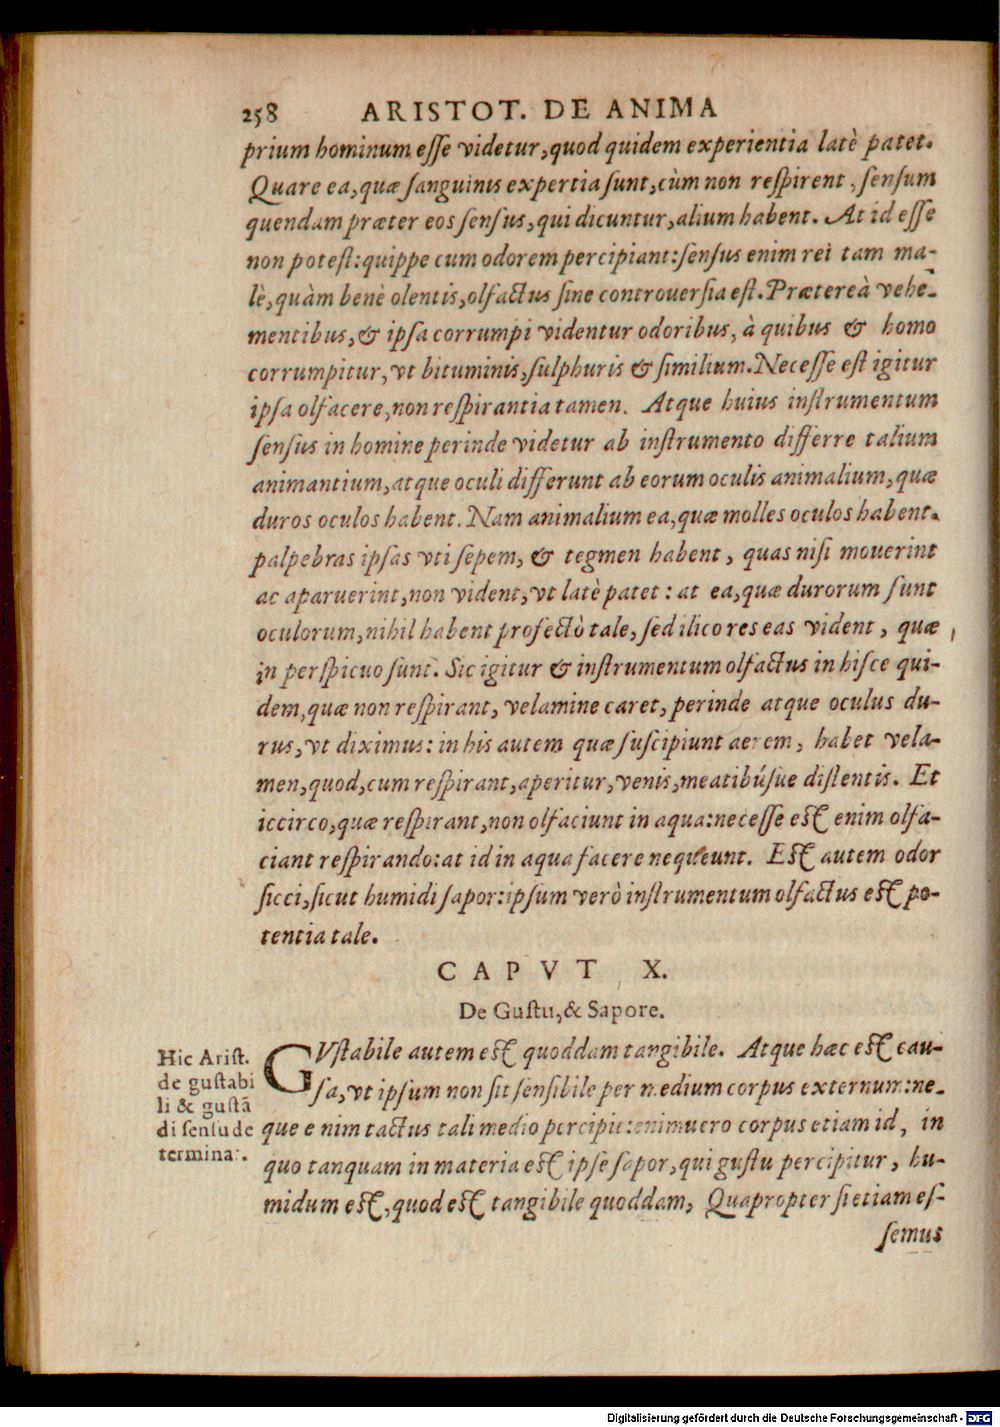 258 ARISTOT. DE ANIMA
prium hominum esse videtur, quod quidem experientia latè patet.
Quare ea, quæ sanguinis expertia sunt, cùm non respirent, sensum
quendam præter eos sensus, qui dicuntur, alium habent. At id esse
non potest: quippe cum odorem percipiant: sensus enim rei tam ma-
lè, quàm benè olentis, olfactus sine controuersia est. Prætereà vehe-
mentibus, & ipsa corrumpi videntur odoribus, à quibus & homo
corrumpitur, vt bituminis, sulphuris & similium. Necesse est igitur
ipsa olfacere, non respirantia tamen. Atque huius instrumentum
sensus in homine perinde videtur ab instrumento differre talium
animantium, atque oculi differunt ab eorum oculis animalium, quæ
duros oculos habent. Nam animalium ea, quæ molles oculos habent.
palpebras ipsas vti sepem, & tegmen habent, quas nisi mouerint
ac aparuerint, non vident, vt latè patet: at ea, quæ durorum sunt
oculorum, nihil habent profectò tale, sed ilico res eas vident, quæ
in perspicuo sunt. Sic igitur & instrumentum olfactus in hisce qui-
dem, quæ non respirant, velamine caret, perinde atque oculus du-
rus, vt diximus: in his autem quæ suscipiunt aerem, habet vela-
men, quod, cum respirant, aperitur, venis, meatibúsue distentis. Et
iccirco, quæ respirant, non olfaciunt in aqua: necesse est enim olfa-
ciant respirando: at id in aqua facere nequeunt. Est autem odor
sicci, sicut humidi sapor: ipsum verò instrumentum olfactus est po-
tentia tale.
CAPVT X.
De Gustu, & Sapore.
Hic Arist.
de gustabi
li & gustā
di sensu de
termina.
GVstabile autem est quoddam tangibile. Atque hæc est cau-
sa, vt ipsum non sit sensibile per medium corpus externum: ne-
que enim tactus tali medio percipit: enimuero corpus etiam id, in
quo tanquam in materia est ipse sapor, qui gustu percipitur, hu-
midum est, quod est tangibile quoddam, Quapropter si etiam es-
semus
Digitalisierung gefördert durch die Deutsche Forschungsgemeinschaft - DFG